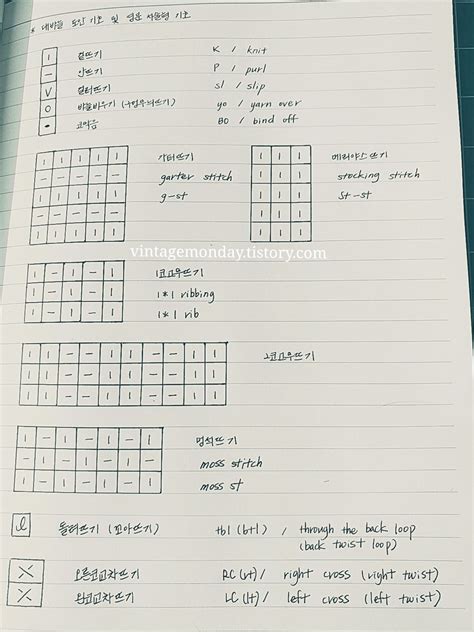 * 대바늘 도안 기호 및 영문 서술형 기호
I 겉뜨기 K / knit
— 안뜨기 P / purl
V 걸러뜨기 sl / slip
O 바늘비우기 yo / yarn over
• 코막음 BO / bind off
가터뜨기
garter stitch
g-st
메리야스뜨기
stocking stitch
St-st
vintagemonday.tistory.com
I — I — I
I — I — I
I — I — I
1코고무뜨기
1*1 ribbing
1*1 rib
2코고무뜨기
멍석뜨기
moss stitch
moss st
ℓ 돌려뜨기 (꼬아뜨기) tbl (btl) / through the back loop
(back twist loop)
오른코교차뜨기 RC (rt) / right cross (right twist)
왼코교차뜨기 LC (lt) / left cross (left twist)